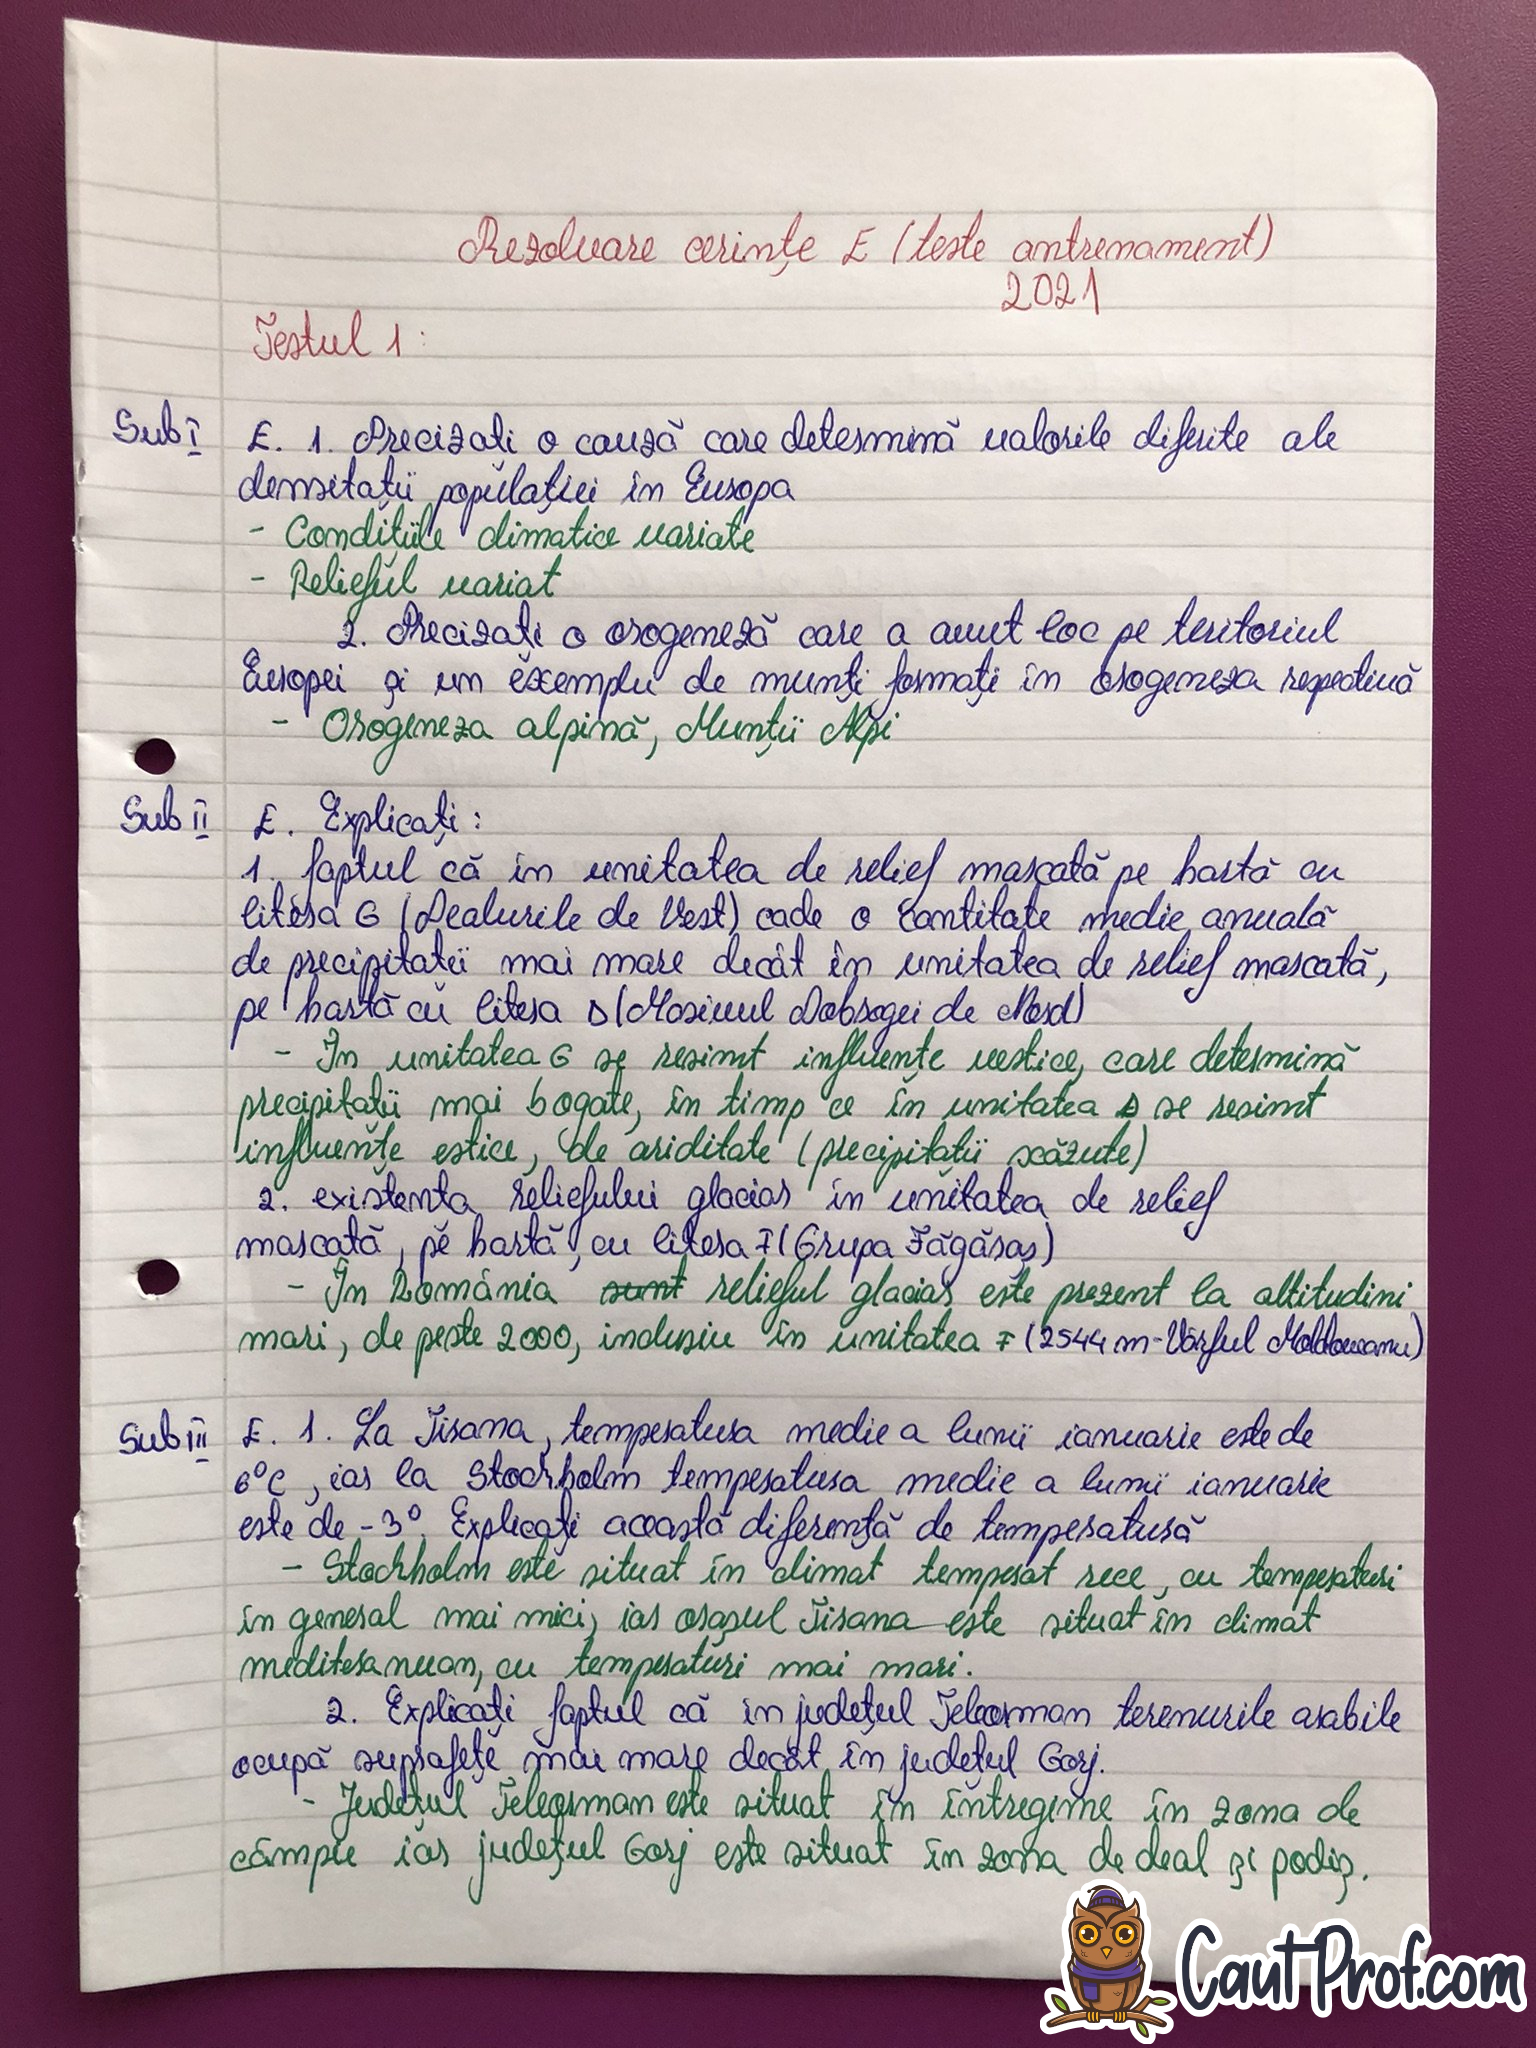 Rezolvare cerințe E (teste antrenament)
2021
Testul 1:
Sub I E. 1. Precizați o cauză care determină valorile diferite ale
densitații populației în Europa
- Condițiile climatice variate
- Relieful variat
2. Precizați o orogeneză care a avut loc pe teritoriul
Europei și un exemplu de munți formați în orogeneza respectivă
- Orogeneza alpină, Munții Alpi
Sub II E. Explicați:
1. faptul că în unitatea de relief marcată pe hartă cu
litera G (Dealurile de Vest) cade o cantitate medie anuală
de precipitatii mai mare decât în unitatea de relief marcată,
pe hartă cu litera D (Masivul Dobrogei de Nord)
- În unitatea G se resimt influențe vestice, care determină
precipitații mai bogate, în timp ce în unitatea D se resimt
influențe estice, de ariditate (precipitații scăzute)
2. existenta reliefului glaciar în unitatea de relief
marcată, pe hartă, cu litera F (Grupa Făgăraș)
- În România sunt relieful glaciar este prezent la altitudini
mari, de peste 2000, inclusiv în unitatea F (2544 m-Vârful Moldoveanu)
Sub III E. 1. La Tirana, temperatura medie a lunii ianuarie este de
6°C, iar la Stockholm temperatura medie a lunii ianuarie
este de -3°. Explicați această diferență de temperatură
- Stockholm este situat în climat temperat rece, cu temperaturi
în general mai mici, iar orașul Tirana este situat în climat
mediteranean, cu temperaturi mai mari.
2. Explicați faptul că în județul Teleorman terenurile arabile
ocupă suprafețe mai mare decât în județul Gorj.
- Județul Teleorman este situat în întregime în zona de
câmpie iar județul Gorj este situat în zona de deal și podiș.
CautProf.com